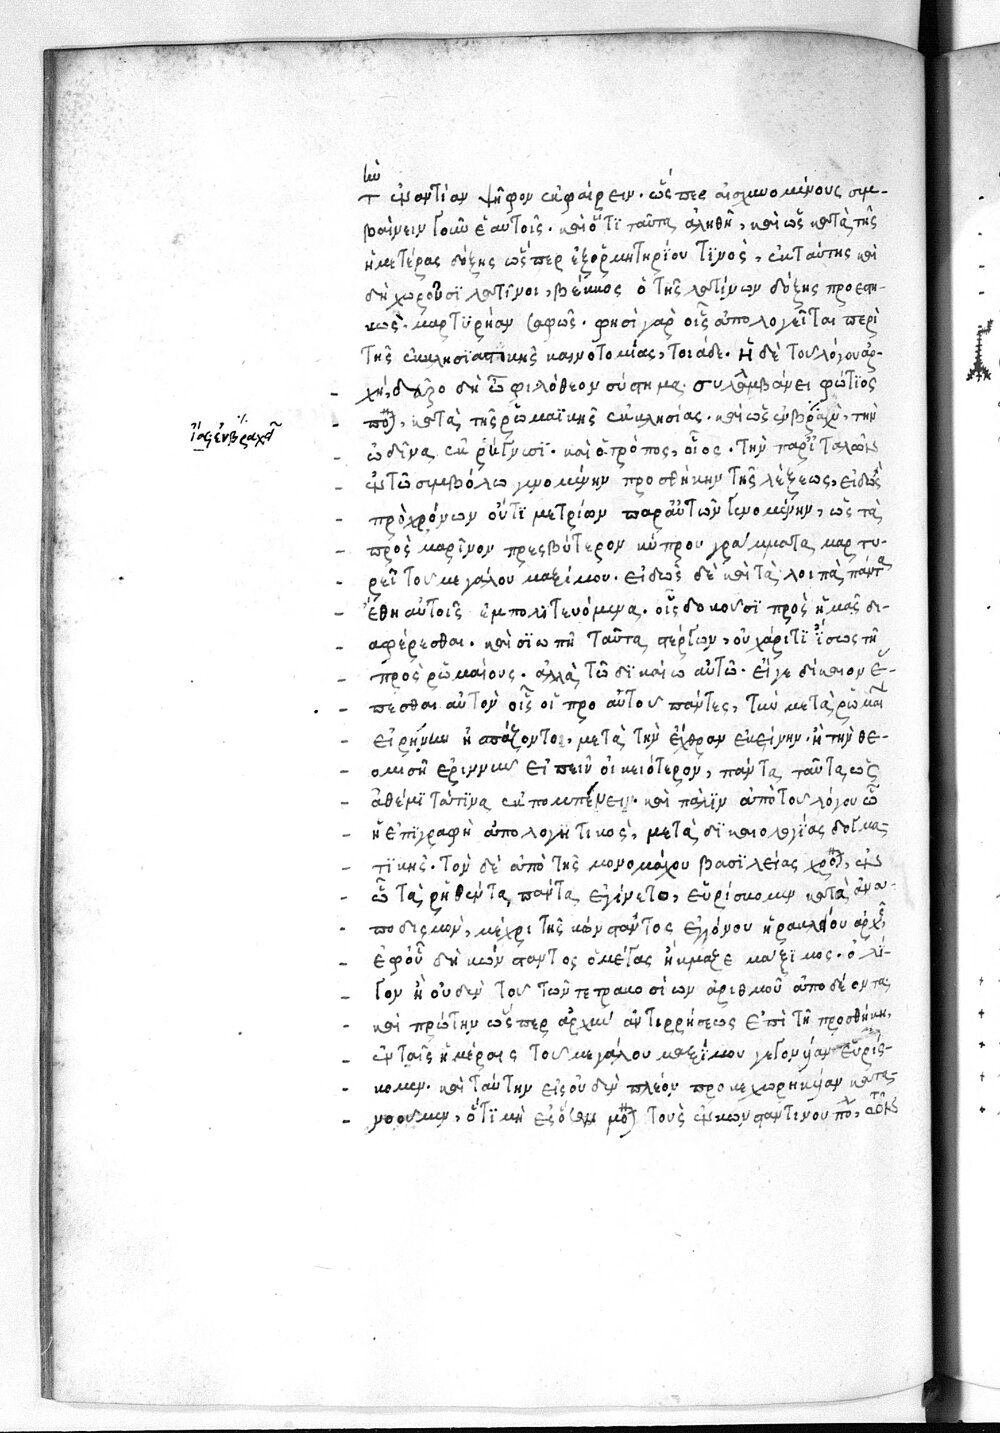 τὴν ἐναντίαν ψῆφον ἐκφέρειν. ὥσπερ αἰσχυνομένους συμ-
βαίνειν ἑαυτοῖς. καὶ ὅτι ταῦτα ἀληθῆ, καὶ ὡς κατὰ τῆς
ἡμετέρας δόξης ὥσπερ ἐξ ὁρμητηρίου τινὸς, ἐκ ταύτης καὶ
δὴ χωροῦσι λατῖνοι, βέκκος ὁ τῆς λατίνων δόξης προεστη-
κὼς μαρτυρήσαι σαφῶς. φησὶ γὰρ οἷς ἀπολογεῖται περὶ
τῆς ἐκκλησιαστικῆς καινοτομίας, τοιάδε. ἡ δὲ τοῦ λόγου ἀρ-
χὴ, ὦ φιλόθεον σύστημα. συλλαμβάνει φώτιος
κατὰ τῆς ῥωμαϊκῆς ἐκκλησίας. καὶ ὡς ἐν βραχεῖ, τὴν
ὠδῖνα ἐκρήγνυσι. καὶ ὁ τρόπος, οἷος. τὴν παρ' ἰταλῶν
ἐν τῷ συμβόλῳ γενομένην προσθήκην τῆς λέξεως, εἰδὼς
πρὸ χρόνων οὔτι μετρίων παρ' αὐτῶν γενομένην, ὡς τὰ
πρὸς μαρῖνον πρεσβύτερον κύπρου γράμματα μαρτυ-
ρεῖ τοῦ μεγάλου μαξίμου. εἰδὼς δὲ καὶ τὰ λοιπὰ πάντα
ἔθη αὐτοῖς ἐμπολιτευόμενα. οἷς δοκοῦσι πρὸς ἡμᾶς δι-
αφέρεσθαι. καὶ σιωπῇ ταῦτα στέργων, οὐ χάριτι ἴσως τῇ
πρὸς ῥωμαίους. ἀλλὰ τῷ δικαίῳ αὐτῷ. εἴγε δίκαιον ἕ-
πεσθαι αὐτὸν οἷς οἱ πρὸ αὐτοῦ πάντες, τὴν μετὰ ῥωμαίων
εἰρήνην ἠσπάζοντο. μετὰ τὴν ἔχθραν ἐκείνην. ἢ τὴν θε-
ομισῆ ἐριννὺν εἰπεῖν οἰκειότερον, πάντα ταῦτα ὡς
ἀθέμιτά τινα ἐκπομπεύειν. καὶ πάλιν ἀπὸ τοῦ λόγου οὗ
ἡ ἐπιγραφὴ ἀπολογητικὸς, μετὰ δικαιολογίας δογμα-
τικῆς. τὸν δὲ ἀπὸ τῆς μονομάχου βασιλείας χρόνον, ἐν
ᾧ τὰ ῥηθέντα πάντα ἐγίνετο, εὑρίσκομεν κατὰ ἀνα-
ποδισμὸν, μέχρι τῆς κώνσταντος ἐγγόνου ἡρακλείου ἀρχῆς
ἐφ' οὗ δὴ κώνσταντος ὁ μέγας ἤκμαζε μάξιμος. ὀλί-
γον ἢ οὐδὲν τοῦ τῶν τετρακοσίων ἀριθμοῦ ἀποδέοντα
καὶ πρώτην ὥσπερ ἀρχὴν ἀντιρρήσεως ἐπὶ τῇ προσθήκῃ,
ἐν ταῖς ἡμέραις τοῦ μεγάλου μαξίμου γεγονυῖαν εὑρίς-
κομεν. καὶ ταύτην εἰς οὐδὲν πλέον προκεχωρηκυῖαν κατα-
νοοῦμεν, ὅτι μὴ ἐξ ὅσον μόνον τοὺς ἐν κωνσταντίνου πόλει,
ἴσως ἐν βραχεῖ